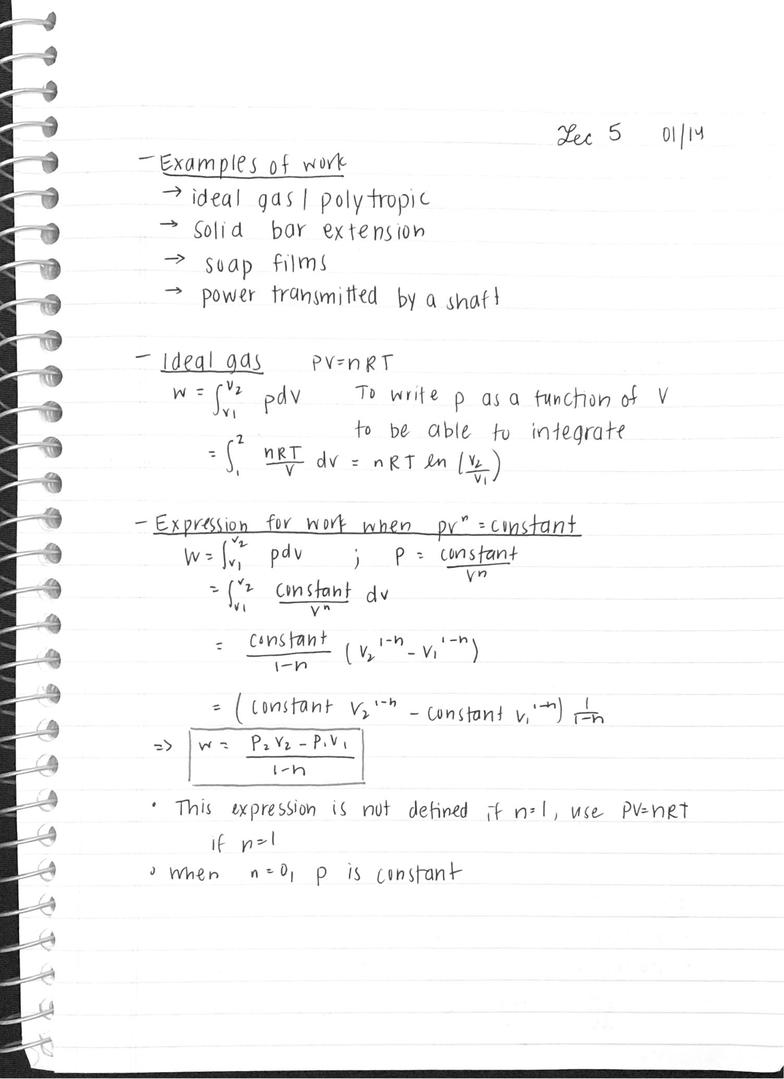 Lec 5 01/14
- Examples of work
→ ideal gas / polytropic
→ solid bar extension
→ soap films
→ power transmitted by a shaft
- Ideal gas PV=nRT
W = ∫_{V1}^{V2} pdv To write p as a function of V
to be able to integrate
= ∫_1^2 nRT/V dv = nRT ln (V2/V1)
- Expression for work when pvⁿ = constant
W = ∫_{V1}^{V2} pdv ; P = constant/Vⁿ
= ∫_{V1}^{V2} constant/Vⁿ dv
= constant/1-n (V2^{1-n} - V1^{1-n})
= (constant V2^{1-n} - constant V1^{1-n}) 1/1-n
=> W = P2V2 - P1V1/1-n
• This expression is not defined if n=1, use PV=nRT
if n=1
• when n=0, p is constant